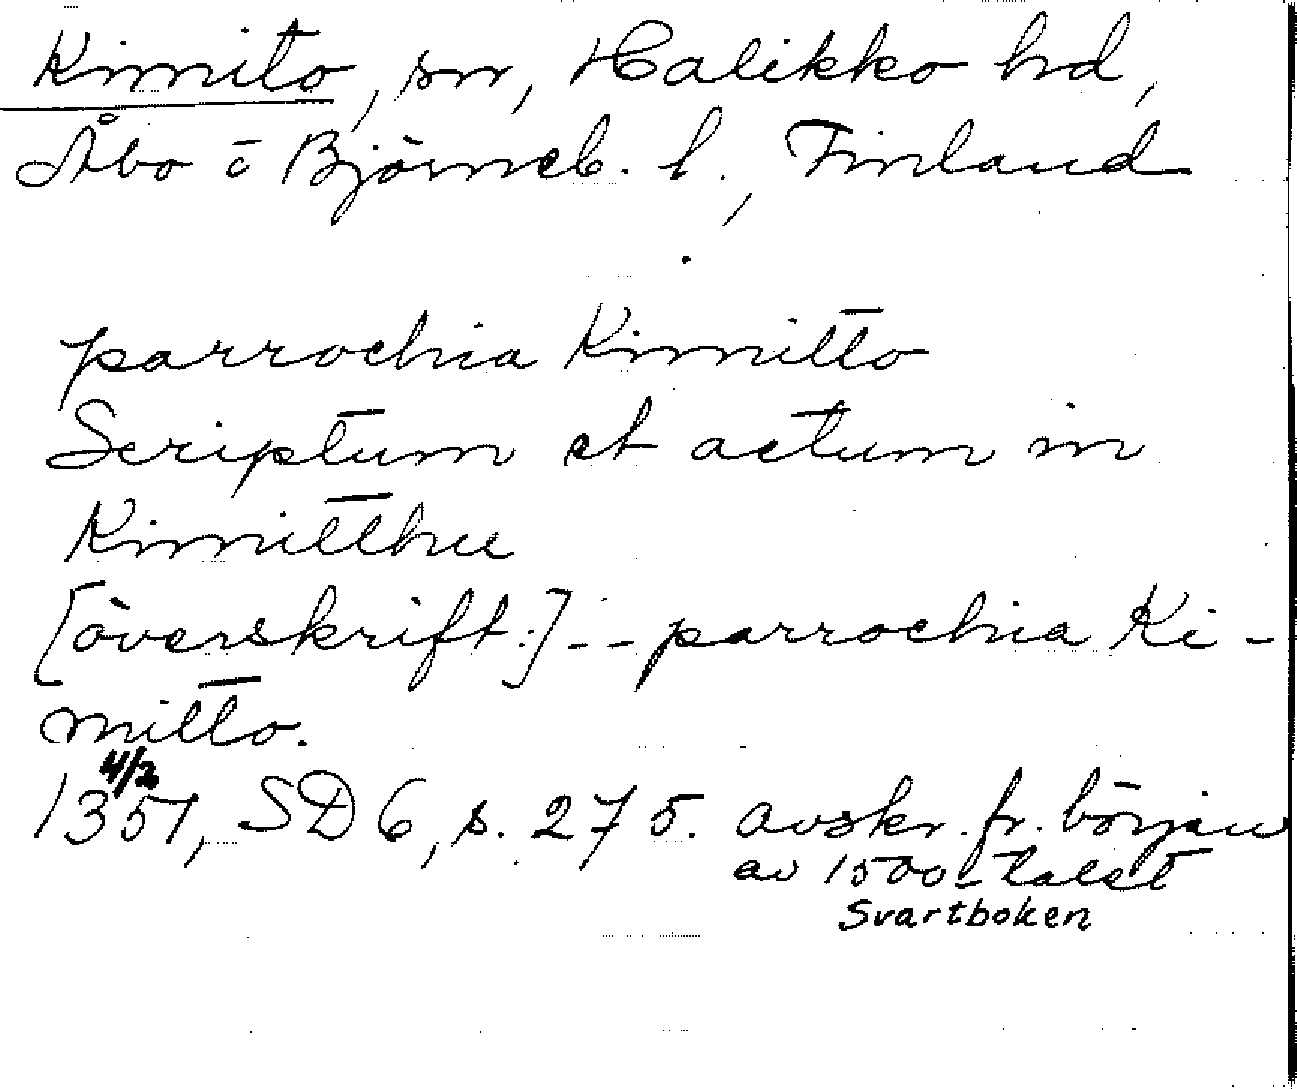 Kimito, sn, Halikko hd,
Åbo o Björneb. l., Finland
parrochia Kimitto
Scriptum et actum in
Kimitthu
[överskrift:] -- parrochia Ki-
mitto.
4/2
1351, SD 6, s. 275. avskr. fr. början
av 1500-talet
Svartboken